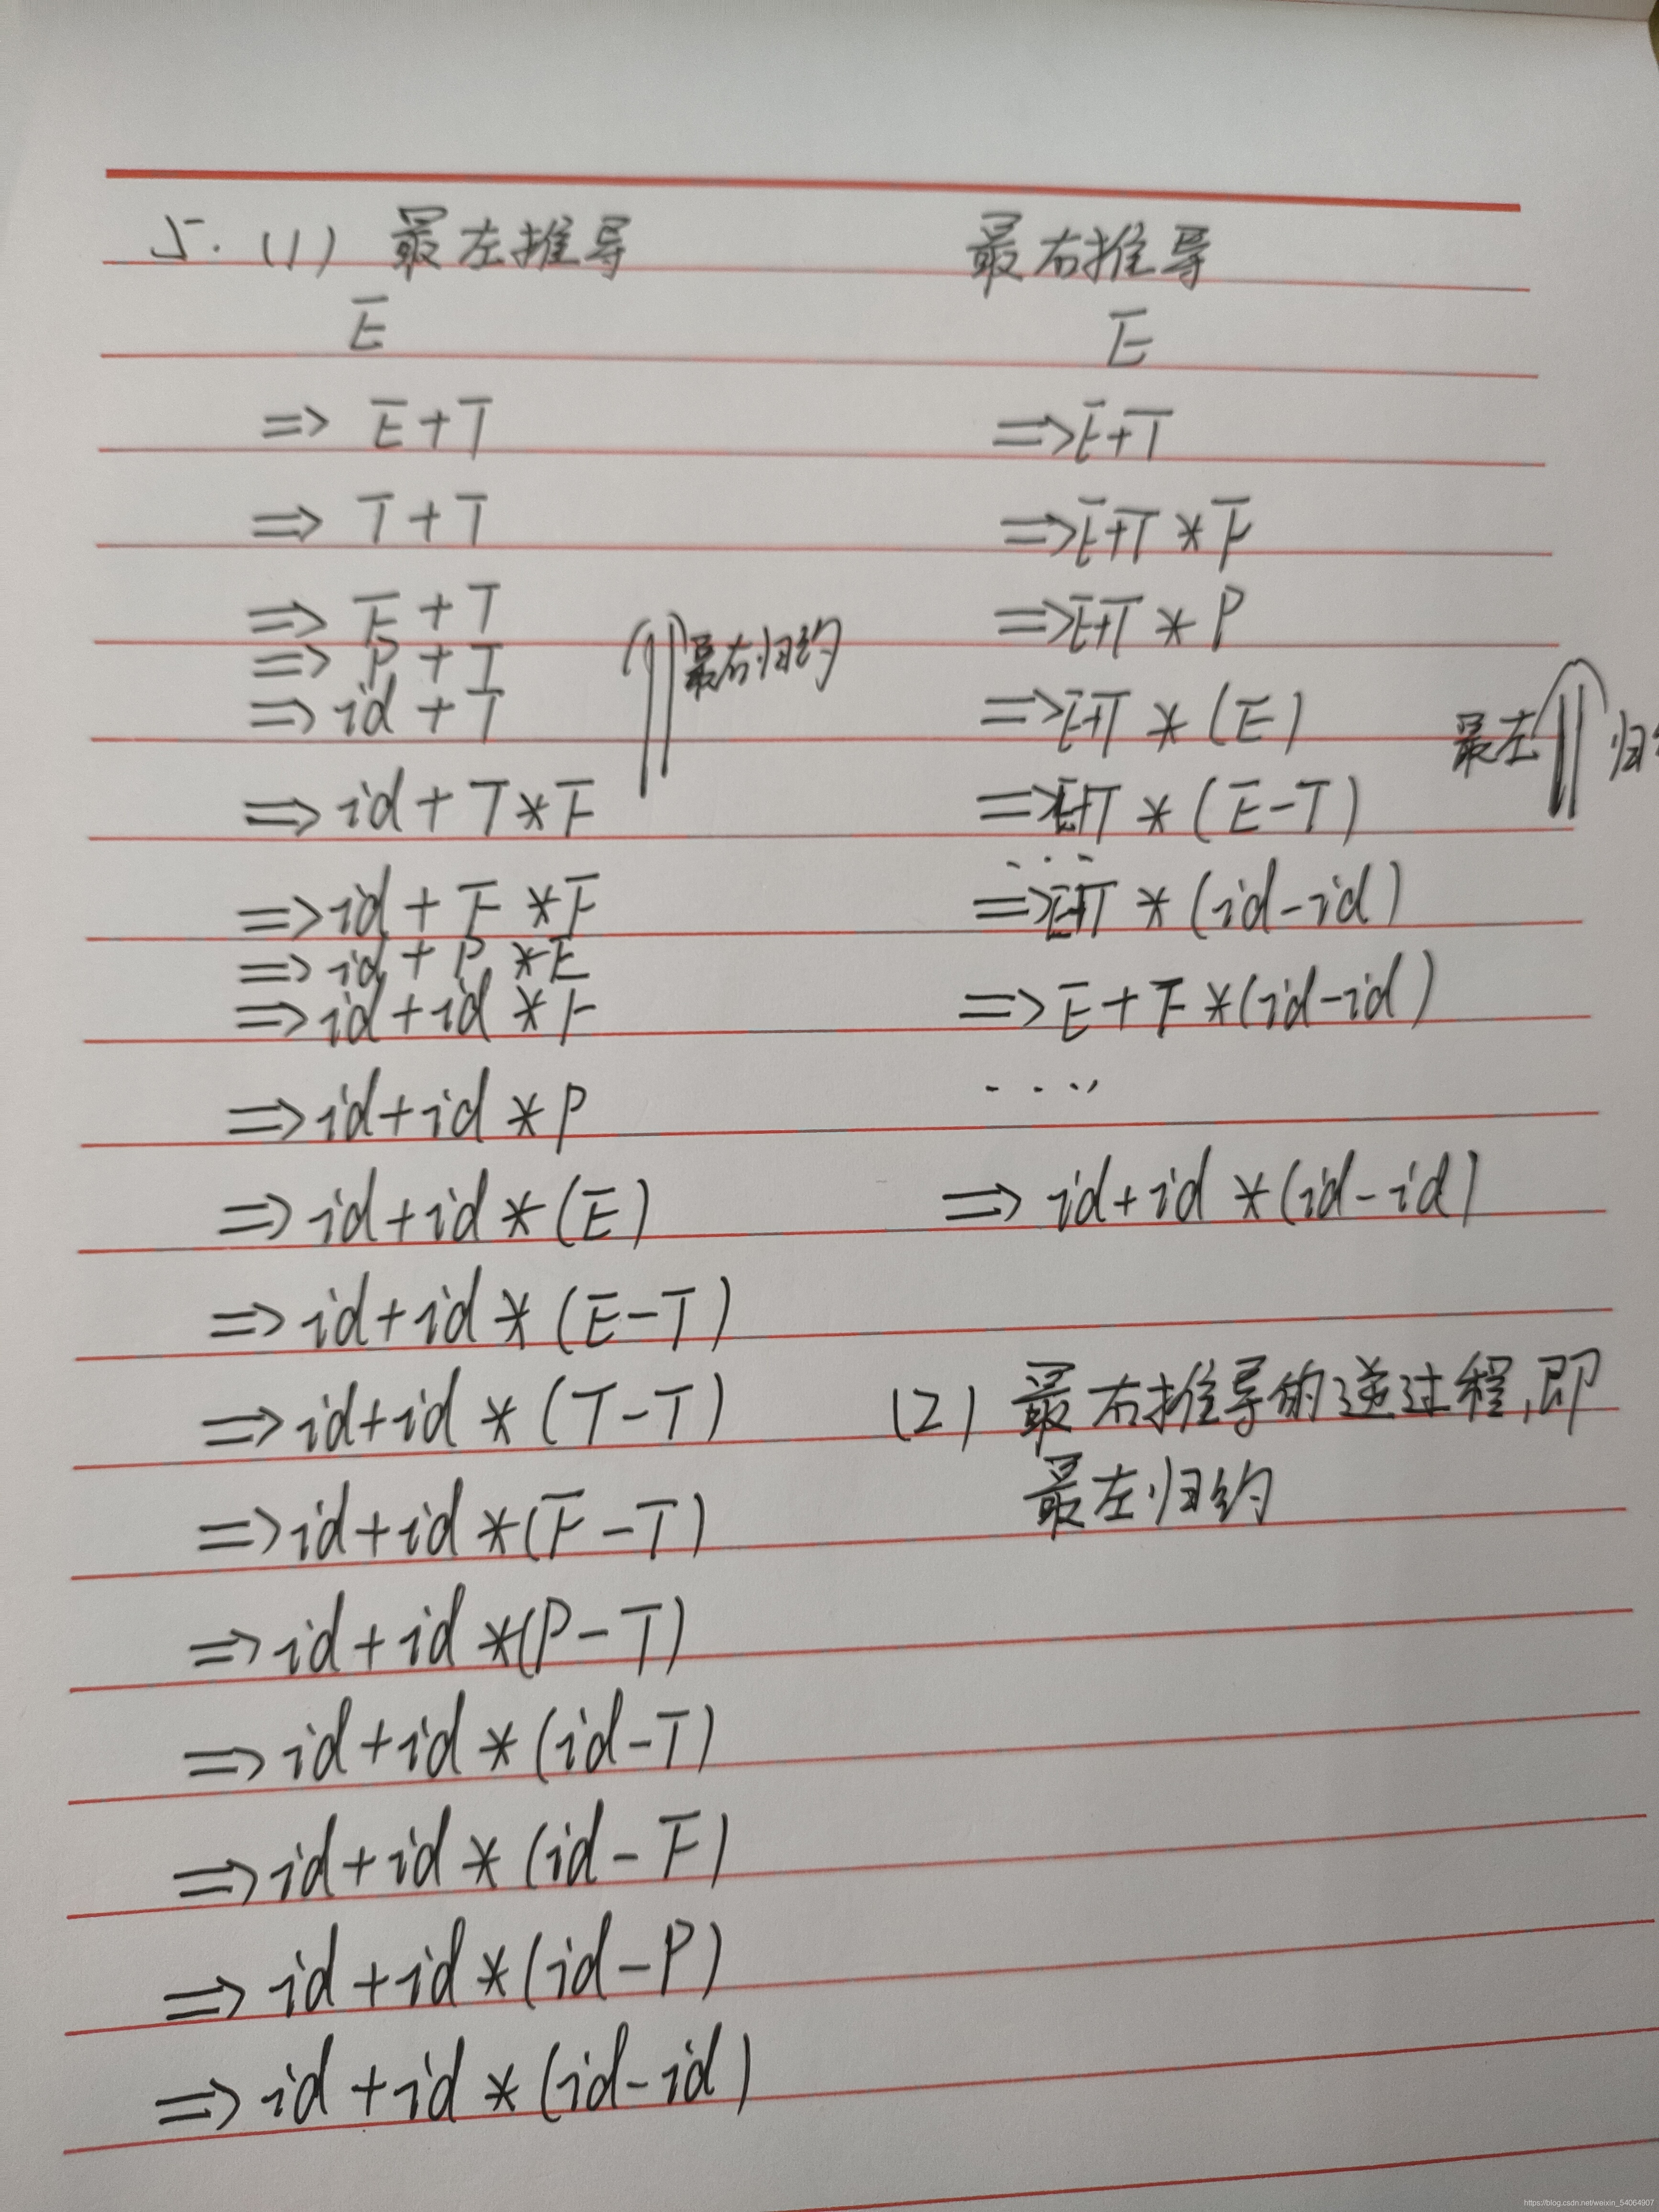 5. (1) 最左推导
E
⇒ E+T
⇒ T+T
⇒ F+T
⇒ P+T
⇒ id+T
最右归约
⇒ id+T*F
⇒ id+F*F
⇒ id+P*F
⇒ id+id*F
⇒ id+id*P
⇒ id+id*(E)
⇒ id+id*(E-T)
⇒ id+id*(T-T)
⇒ id+id*(F-T)
⇒ id+id*(P-T)
⇒ id+id*(id-T)
⇒ id+id*(id-F)
⇒ id+id*(id-P)
⇒ id+id*(id-id)
最右推导
E
⇒ E+T
⇒ E+T*F
⇒ E+T*P
⇒ E+T*(E)
最左 归约
⇒ E+T*(E-T)
...
⇒ E+T*(id-id)
⇒ E+F*(id-id)
....
⇒ id+id*(id-id)
(2) 最右推导的逆过程,即
最左归约
https://blog.csdn.net/weixin_54064907